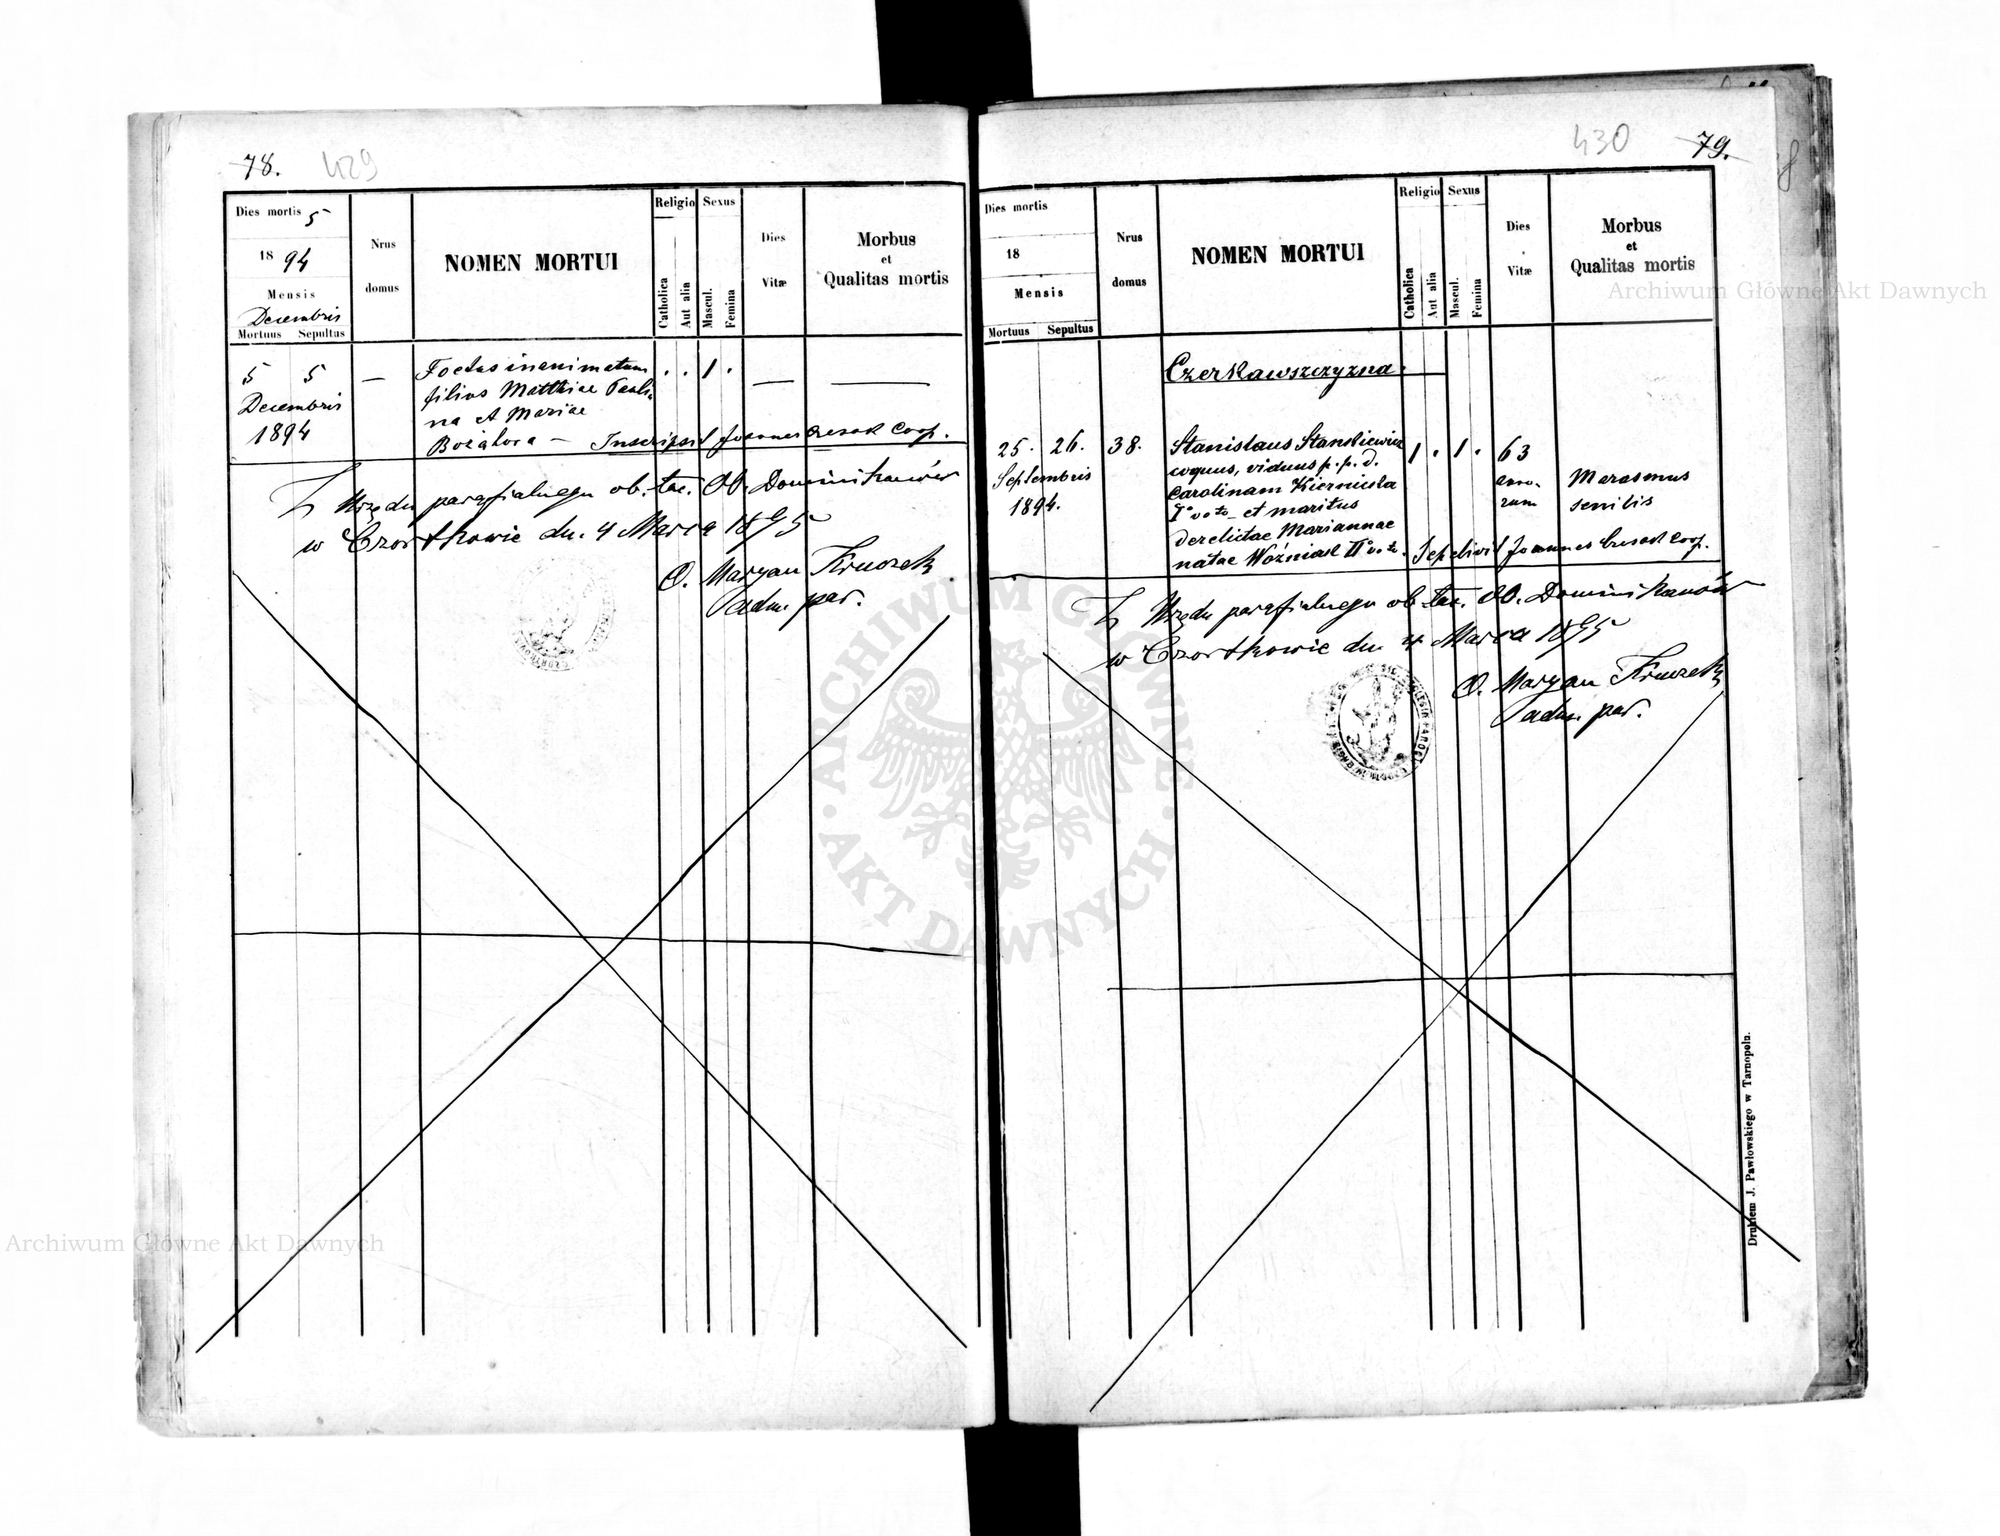 78. 429
Dies mortis 5
1894
Mensis
Decembris
Mortuus Sepultus
Nrus
domus
NOMEN MORTUI
Religio
Catholica
Aut alia
Sexus
Mascul.
Femina
Dies
Vitæ
Morbus
et
Qualitas mortis
5 5 — Foetus inanimatum . . 1 . — —
Decembris filius Matthiae Pauli-
1894 na et Mariae
— Inscripsit Joannes Coop.
Z Urzędu parafialnego ob. łac. OO. Dominikanów
w Czortkowie dn. 4 Marca 1895
O. Maryan Kruczek
adm. par.
430 79.
Dies mortis
18
Mensis
Mortuus Sepultus
Nrus
domus
NOMEN MORTUI
Religio
Catholica
Aut alia
Sexus
Mascul.
Femina
Dies
Vitæ
Morbus
et
Qualitas mortis
Czerkawszczyzna.
25. 26. 38. Stanislaus Stankiewicz 1 . 1 . 63
Septembris coquus, viduus p. p. d. anno- Marasmus
1894. Carolinam Kiernicka rum senilis
I° voto et maritus
derelictae Mariannae
natae Woźniak II° voto. Sepelivit Joannes Coop.
Z Urzędu parafialnego ob. łac. OO. Dominikanów
w Czortkowie dn. 4 Marca 1895
O. Maryan Kruczek
adm. par.
Drukiem J. Pawłowskiego w Tarnopolu.
Archiwum Główne Akt Dawnych
Archiwum Główne Akt Dawnych
ARCHIWUM GŁÓWNE · AKT DAWNYCH ·